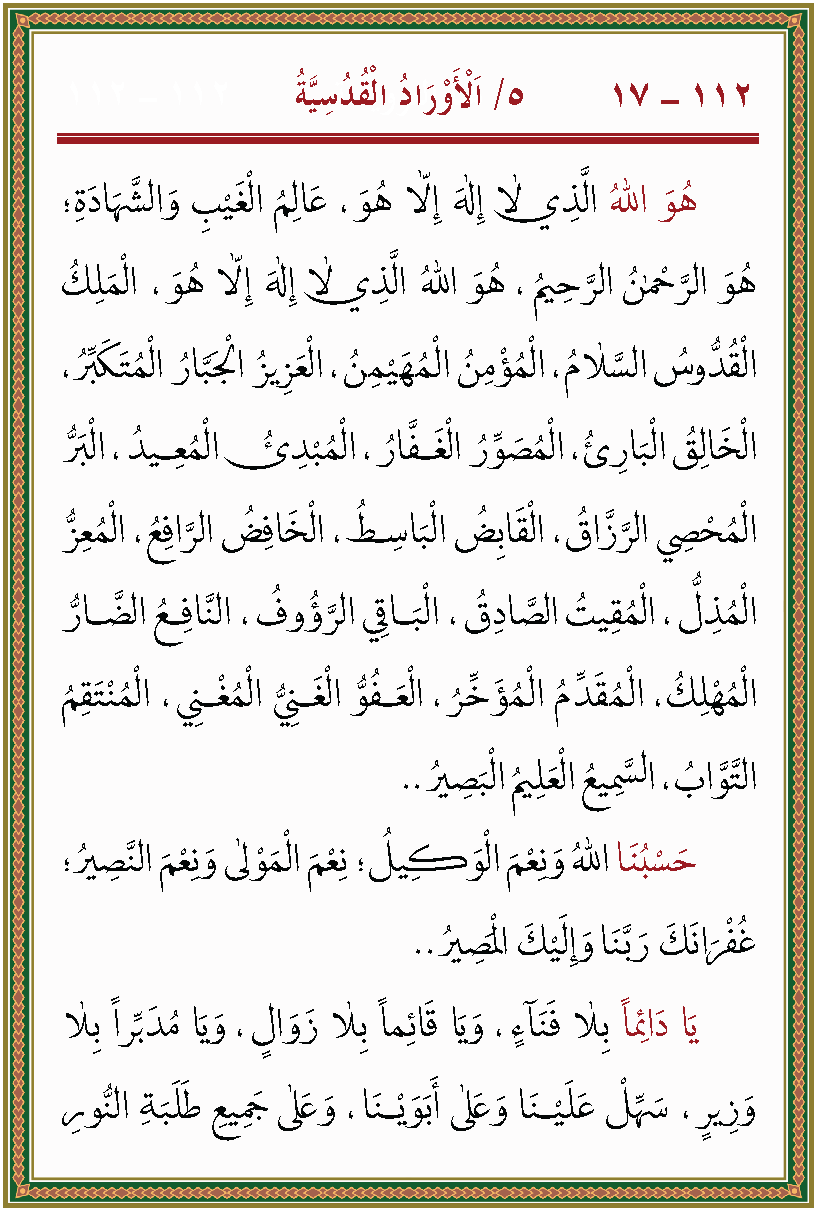 ١١٢ – ١٧ ٥/ اَلْأَوْرَادُ الْقُدُسِيَّةُ
هُوَ اللهُ الَّذِي لَا إِلٰهَ إِلَّا هُوَ ، عَالِمُ الْغَيْبِ وَالشَّهَادَةِ؛
هُوَ الرَّحْمٰنُ الرَّحِيمُ ، هُوَ اللهُ الَّذِي لَا إِلٰهَ إِلَّا هُوَ ، الْمَلِكُ
الْقُدُّوسُ السَّلَامُ ، الْمُؤْمِنُ الْمُهَيْمِنُ ، الْعَزِيزُ الْجَبَّارُ الْمُتَكَبِّرُ ،
الْخَالِقُ الْبَارِئُ ، الْمُصَوِّرُ الْغَفَّارُ ، الْمُبْدِئُ الْمُعِيدُ ، الْبَرُّ
الْمُحْصِي الرَّزَّاقُ ، الْقَابِضُ الْبَاسِطُ ، الْخَافِضُ الرَّافِعُ ، الْمُعِزُّ
الْمُذِلُّ ، الْمُقِيتُ الصَّادِقُ ، الْبَاقِي الرَّؤُوفُ ، النَّافِعُ الضَّارُّ
الْمُهْلِكُ ، الْمُقَدِّمُ الْمُؤَخِّرُ ، الْعَفُوُّ الْغَنِيُّ الْمُغْنِي ، الْمُنْتَقِمُ
التَّوَّابُ ، السَّمِيعُ الْعَلِيمُ الْبَصِيرُ ..
حَسْبُنَا اللهُ وَنِعْمَ الْوَكِيلُ ؛ نِعْمَ الْمَوْلٰى وَنِعْمَ النَّصِيرُ ؛
غُفْرَانَكَ رَبَّنَا وَإِلَيْكَ الْمَصِيرُ ..
يَا دَائِماً بِلَا فَنَآءٍ ، وَيَا قَائِماً بِلَا زَوَالٍ ، وَيَا مُدَبِّراً بِلَا
وَزِيرٍ ، سَهِّلْ عَلَيْنَا وَعَلٰى أَبَوَيْنَا ، وَعَلٰى جَمِيعِ طَلَبَةِ النُّورِ